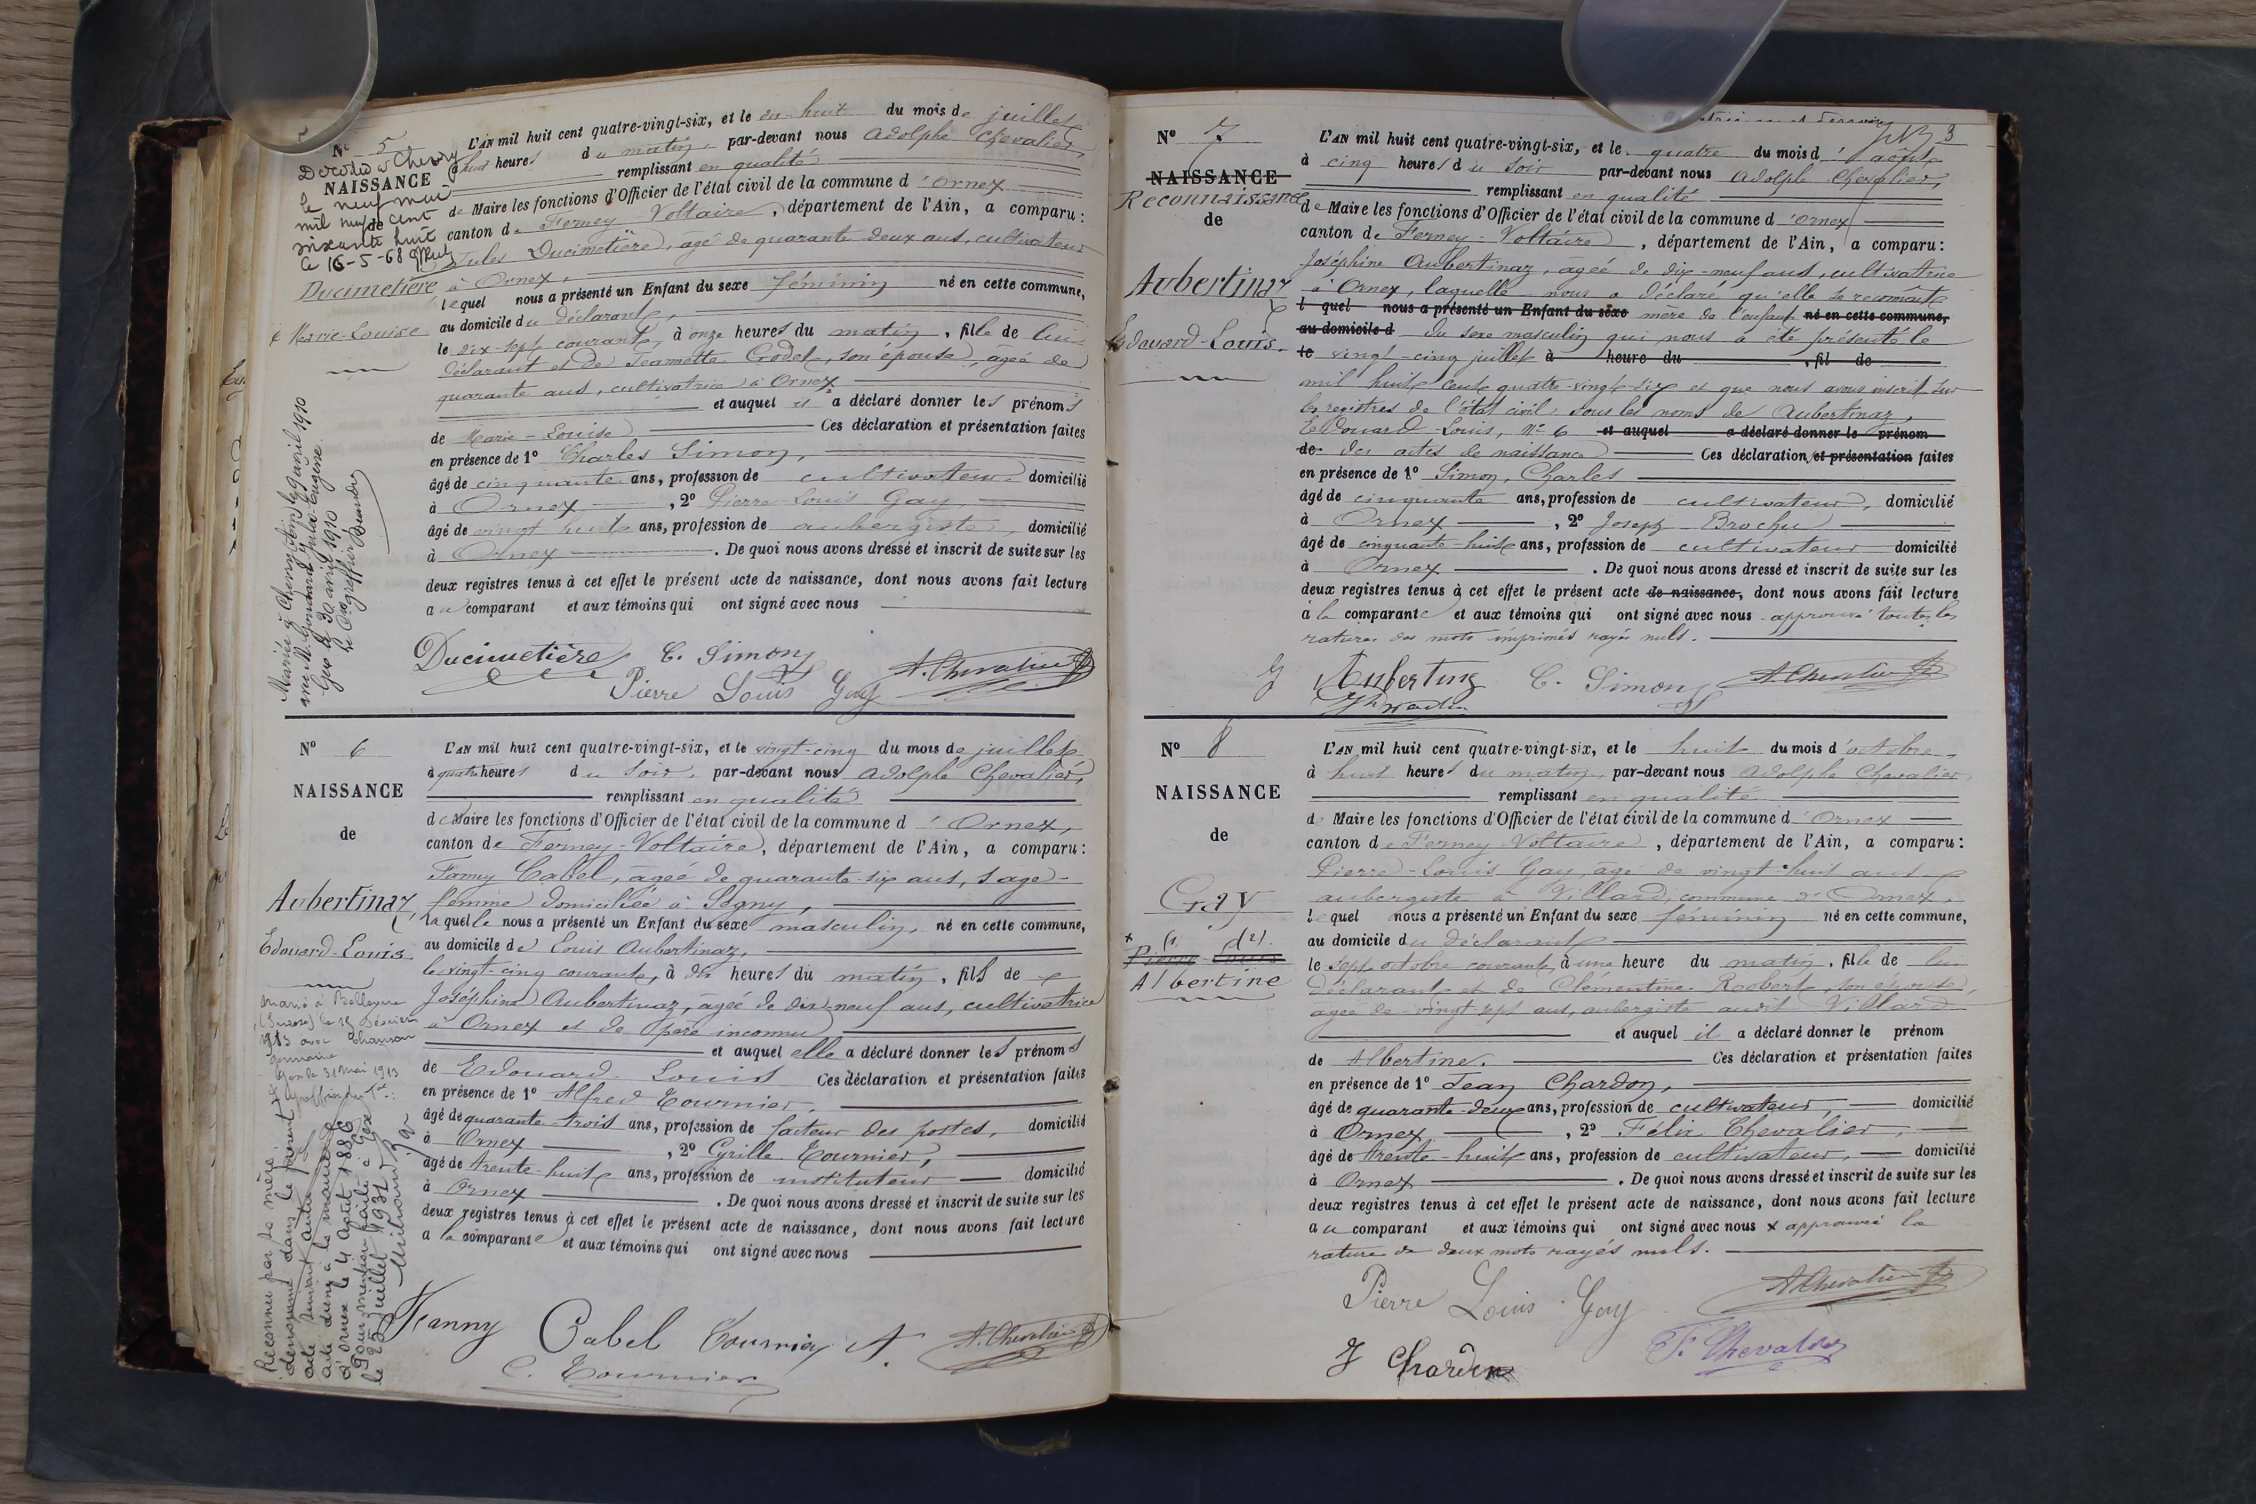 N° 5
Décédée à Chevry
NAISSANCE
le neuf mai
mil neuf cent
de
soixante huit
Ce 16-5-68
Ducimetière
Marie-Louise
Mariée à Chevry (Ain) le 9 avril 1910
avec M. Jules Eugène
Gex le 30 avril 1910
Le greffier
L'AN mil huit cent quatre-vingt-six, et le dix-huit du mois de juillet
à huit heures du matin, par-devant nous Adolphe Chevalier,
remplissant en qualité
de Maire les fonctions d'Officier de l'état civil de la commune d'Ornex
canton de Ferney-Voltaire, département de l'Ain, a comparu:
Jules Ducimetière, âgé de quarante deux ans, cultivateur
à Ornex,
lequel nous a présenté un Enfant du sexe féminin né en cette commune,
au domicile du déclarant,
le dix-sept courant, à onze heures du matin, fille de lui
déclarant et de Jeannette Godet, son épouse, âgée de
quarante ans, cultivatrice à Ornex
et auquel il a déclaré donner les prénoms
de Marie-Louise Ces déclaration et présentation faites
en présence de 1° Charles Simon,
âgé de cinquante ans, profession de cultivateur domicilié
à Ornex, 2° Pierre-Louis Gay
âgé de vingt huit ans, profession de aubergiste, domicilié
à Ornex. De quoi nous avons dressé et inscrit de suite sur les
deux registres tenus à cet effet le présent acte de naissance, dont nous avons fait lecture
au comparant et aux témoins qui ont signé avec nous
Ducimetière C. Simon A. Chevalier
Pierre Louis Gay
N° 6
NAISSANCE
de
Aubertinaz,
Edouard-Louis
Marié à Bellevue
(Suisse) le 15 février
1913 avec Chanson
Germaine
Gex le 31 mai 1913
Reconnu par sa mère
dénommée dans le présent
acte suivant autre
acte dressé à la mairie
d'Ornex le 4 Août 1886
Pour mention faite à Gex
le 25 juillet 1931
L'AN mil huit cent quatre-vingt-six, et le vingt-cinq du mois de juillet
à quatre heures du soir, par-devant nous Adolphe Chevalier,
remplissant en qualité
de Maire les fonctions d'Officier de l'état civil de la commune d'Ornex,
canton de Ferney-Voltaire, département de l'Ain, a comparu:
Fanny Cabel, âgée de quarante-six ans, sage-
femme domiciliée à Ségny,
laquelle nous a présenté un Enfant du sexe masculin, né en cette commune,
au domicile de Louis Aubertinaz,
le vingt-cinq courant, à dix heures du matin, fils de
Joséphine Aubertinaz, âgée de dix-neuf ans, cultivatrice
à Ornex et de père inconnu
et auquel elle a déclaré donner les prénoms
de Edouard-Louis Ces déclaration et présentation faites
en présence de 1° Alfred Tournier,
âgé de quarante-trois ans, profession de facteur des postes, domicilié
à Ornex, 2° Cyrille Tournier,
âgé de trente-huit ans, profession de instituteur domicilié
à Ornex. De quoi nous avons dressé et inscrit de suite sur les
deux registres tenus à cet effet le présent acte de naissance, dont nous avons fait lecture
à la comparante et aux témoins qui ont signé avec nous
Fanny Cabel Tournier A. A. Chevalier
C. Tournier
3
N° 7
NAISSANCE
Reconnaissance
de
Aubertinaz
Edouard-Louis.
L'AN mil huit cent quatre-vingt-six, et le quatre du mois d'août
à cinq heures du soir par-devant nous Adolphe Chevalier,
remplissant en qualité
de Maire les fonctions d'Officier de l'état civil de la commune d'Ornex
canton de Ferney-Voltaire, département de l'Ain, a comparu:
Joséphine Aubertinaz, âgée de dix-neuf ans, cultivatrice
à Ornex, laquelle nous a déclaré qu'elle se reconnaît
l quel nous a présenté un Enfant du sexe mère de l'enfant né en cette commune,
au domicile d du sexe masculin qui nous a été présenté le
le vingt-cinq juillet à heure du , fil de
mil huit cent quatre-vingt-six et que nous avons inscrit sur
les registres de l'état civil, sous les noms de Aubertinaz,
Edouard-Louis, N° 6 et auquel a déclaré donner le prénom
de des actes de naissance Ces déclaration et présentation faites
en présence de 1° Simon, Charles
âgé de cinquante ans, profession de cultivateur, domicilié
à Ornex, 2° Joseph Brochu
âgé de cinquante-huit ans, profession de cultivateur domicilié
à Ornex. De quoi nous avons dressé et inscrit de suite sur les
deux registres tenus à cet effet le présent acte de naissance, dont nous avons fait lecture
à la comparante et aux témoins qui ont signé avec nous approuvé toutes les
ratures des mots imprimés rayés nuls.
J Aubertinaz C. Simon A. Chevalier
N° 8
NAISSANCE
de
Gay
Pierre Louis
Albertine
L'AN mil huit cent quatre-vingt-six, et le huit du mois d'octobre
à huit heures du matin, par-devant nous Adolphe Chevalier,
remplissant en qualité
de Maire les fonctions d'Officier de l'état civil de la commune d'Ornex
canton de Ferney-Voltaire, département de l'Ain, a comparu:
Pierre-Louis Gay, âgé de vingt-huit ans
aubergiste à Villard, commune d'Ornex,
lequel nous a présenté un Enfant du sexe féminin né en cette commune,
au domicile du déclarant
le sept octobre courant, à une heure du matin, fille de lui
déclarant et de Clémentine Robert, son épouse,
âgée de vingt-sept ans, aubergiste audit Villard
et auquel il a déclaré donner le prénom
de Albertine. Ces déclaration et présentation faites
en présence de 1° Jean Chardon,
âgé de quarante-deux ans, profession de cultivateur, domicilié
à Ornex, 2° Félix Chevalier,
âgé de trente-huit ans, profession de cultivateur, domicilié
à Ornex. De quoi nous avons dressé et inscrit de suite sur les
deux registres tenus à cet effet le présent acte de naissance, dont nous avons fait lecture
au comparant et aux témoins qui ont signé avec nous x approuvé la
rature de deux mots rayés nuls.
Pierre Louis Gay A. Chevalier
J Chardon F. Chevalier